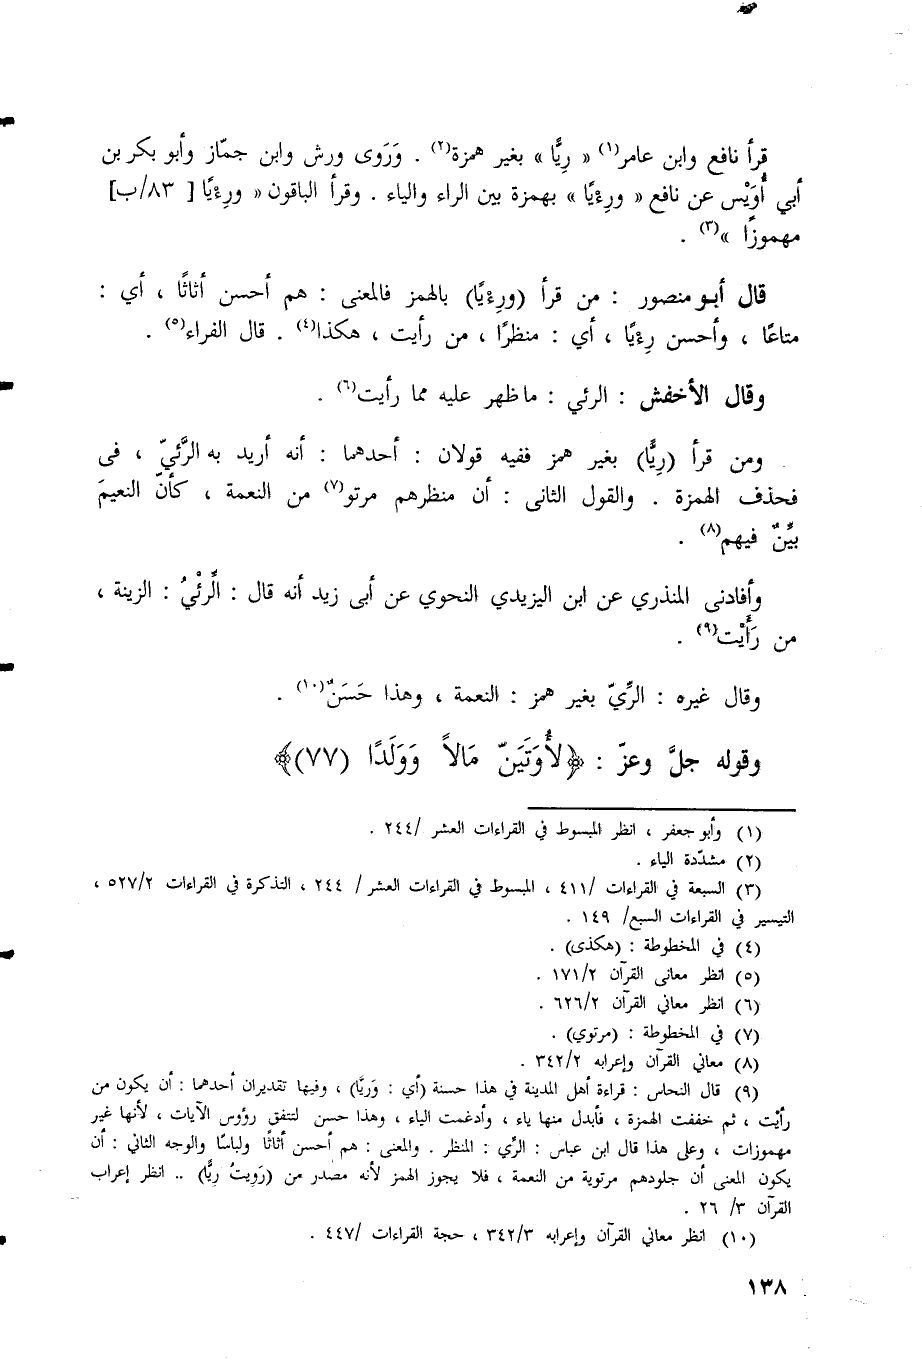 قرأ نافع وابن عامر(١) « رِيًّا » بغير همزة(٢) . وَرَوى ورش وابن جمّاز وأبو بكر بن
أبي أُوَيْس عن نافع « ورِءْيًا » بهمزة بين الراء والياء . وقرأ الباقون « ورِءْيًا [ ٨٣/ب]
مهموزًا »(٣) .
قال أبو منصور : من قرأ (ورِءْيًا) بالهمز فالمعنى : هم أحسن أثاثًا ، أي :
متاعًا ، وأحسن رِءْيًا ، أي : منظرًا ، من رأيت ، هكذا(٤) . قال الفراء(٥) .
وقال الأخفش : الرئي : ما ظهر عليه مما رأيت(٦) .
ومن قرأ (رِيًّا) بغير همز ففيه قولان : أحدهما : أنه أريد به الرَّئيّ ، فى
فحذف الهمزة . والقول الثانى : أن منظرهم مرتو(٧) من النعمة ، كأنّ النعيمَ
بيِّنٌ فيهم(٨) .
وأفادنى المنذري عن ابن اليزيدي النحوي عن أبى زيد أنه قال : الِّرئْيُ : الزينة ،
من رَأَيْت(٩) .
وقال غيره : الرِّيّ بغير همز : النعمة ، وهذا حَسَنٌ(١٠) .
وقوله جلَّ وعزّ : ﴿لأُوتَيَنّ مَالاً وَوَلَدًا (٧٧)﴾
(١) وأبو جعفر ، انظر المبسوط في القراءات العشر /٢٤٤ .
(٢) مشدّدة الياء .
(٣) السبعة في القراءات /٤١١ ، المبسوط في القراءات العشر/ ٢٤٤ ، التذكرة في القراءات ٥٢٧/٢ ،
التيسير في القراءات السبع/ ١٤٩ .
(٤) في المخطوطة : (هكذى) .
(٥) انظر معانى القرآن ١٧١/٢ .
(٦) انظر معاني القرآن ٦٢٦/٢ .
(٧) في المخطوطة : (مرتوي) .
(٨) معاني القرآن وإعرابه ٣٤٢/٢ .
(٩) قال النحاس : قراءة أهل المدينة في هذا حسنة (أي : وَريًّا) ، وفيها تقديران أحدهما : أن يكون من
رأيْت ، ثم خففت الهمزة ، فأبدل منها ياء ، وأدغمت الياء ، وهذا حسن لتتفق رؤوس الآيات ، لأنها غير
مهموزات ، وعلى هذا قال ابن عباس : الرِّي : المنظر . والمعنى : هم أحسن أثاثًا ولباسًا والوجه الثاني : أن
يكون المعنى أن جلودهم مرتوية من النعمة ، فلا يجوز الهمز لأنه مصدر من (رَوِيتُ رِيًّا) .. انظر إعراب
القرآن ٣/ ٢٦ .
(١٠) انظر معاني القرآن وإعرابه ٣٤٢/٣ ، حجة القراءات /٤٤٧ .
١٣٨